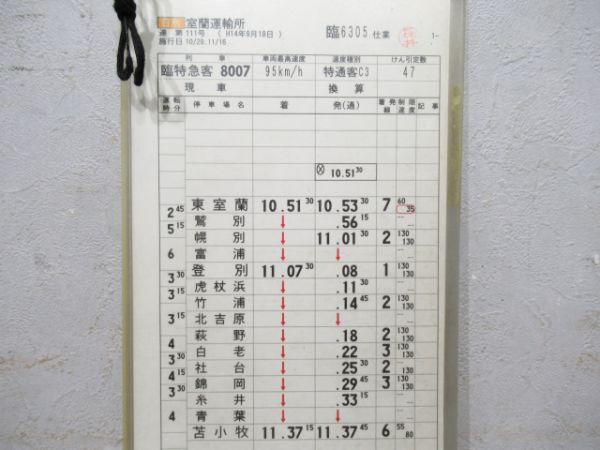 室蘭運輸所
達 第 111号 ( H14年9月18日 )
施行日 10/28.11/16
臨6305 仕業 1-
列車 車両最高速度 速度種別 けん引定数
臨特急客 8007 95km/h 特通客C3 47
現車 換算
運転時分 停車場名 着 発(通) 着発線 制限速度 記事
⊗ 10.51 30
東室蘭 10.51 30 10.53 30 7 60 35
2 45
鷲別 ↓ .56 15
5 15
幌別 ↓ 11.01 30 2 130 130
富浦 ↓ ↓
6
登別 11.07 30 .08 1 130 130
3 30
虎杖浜 ↓ .11 30
3 15
竹浦 ↓ .14 45 2 130 130
北吉原 ↓ ↓
3 15
萩野 ↓ .18 2 130 130
4
白老 ↓ .22 3 130 130
3 30
社台 ↓ .25 30 2 130 130
4
錦岡 ↓ .29 45 3 130 130
3 30
糸井 ↓ .33 15
青葉 ↓ ↓
4
苫小牧 11.37 15 11.37 45 6 55 80